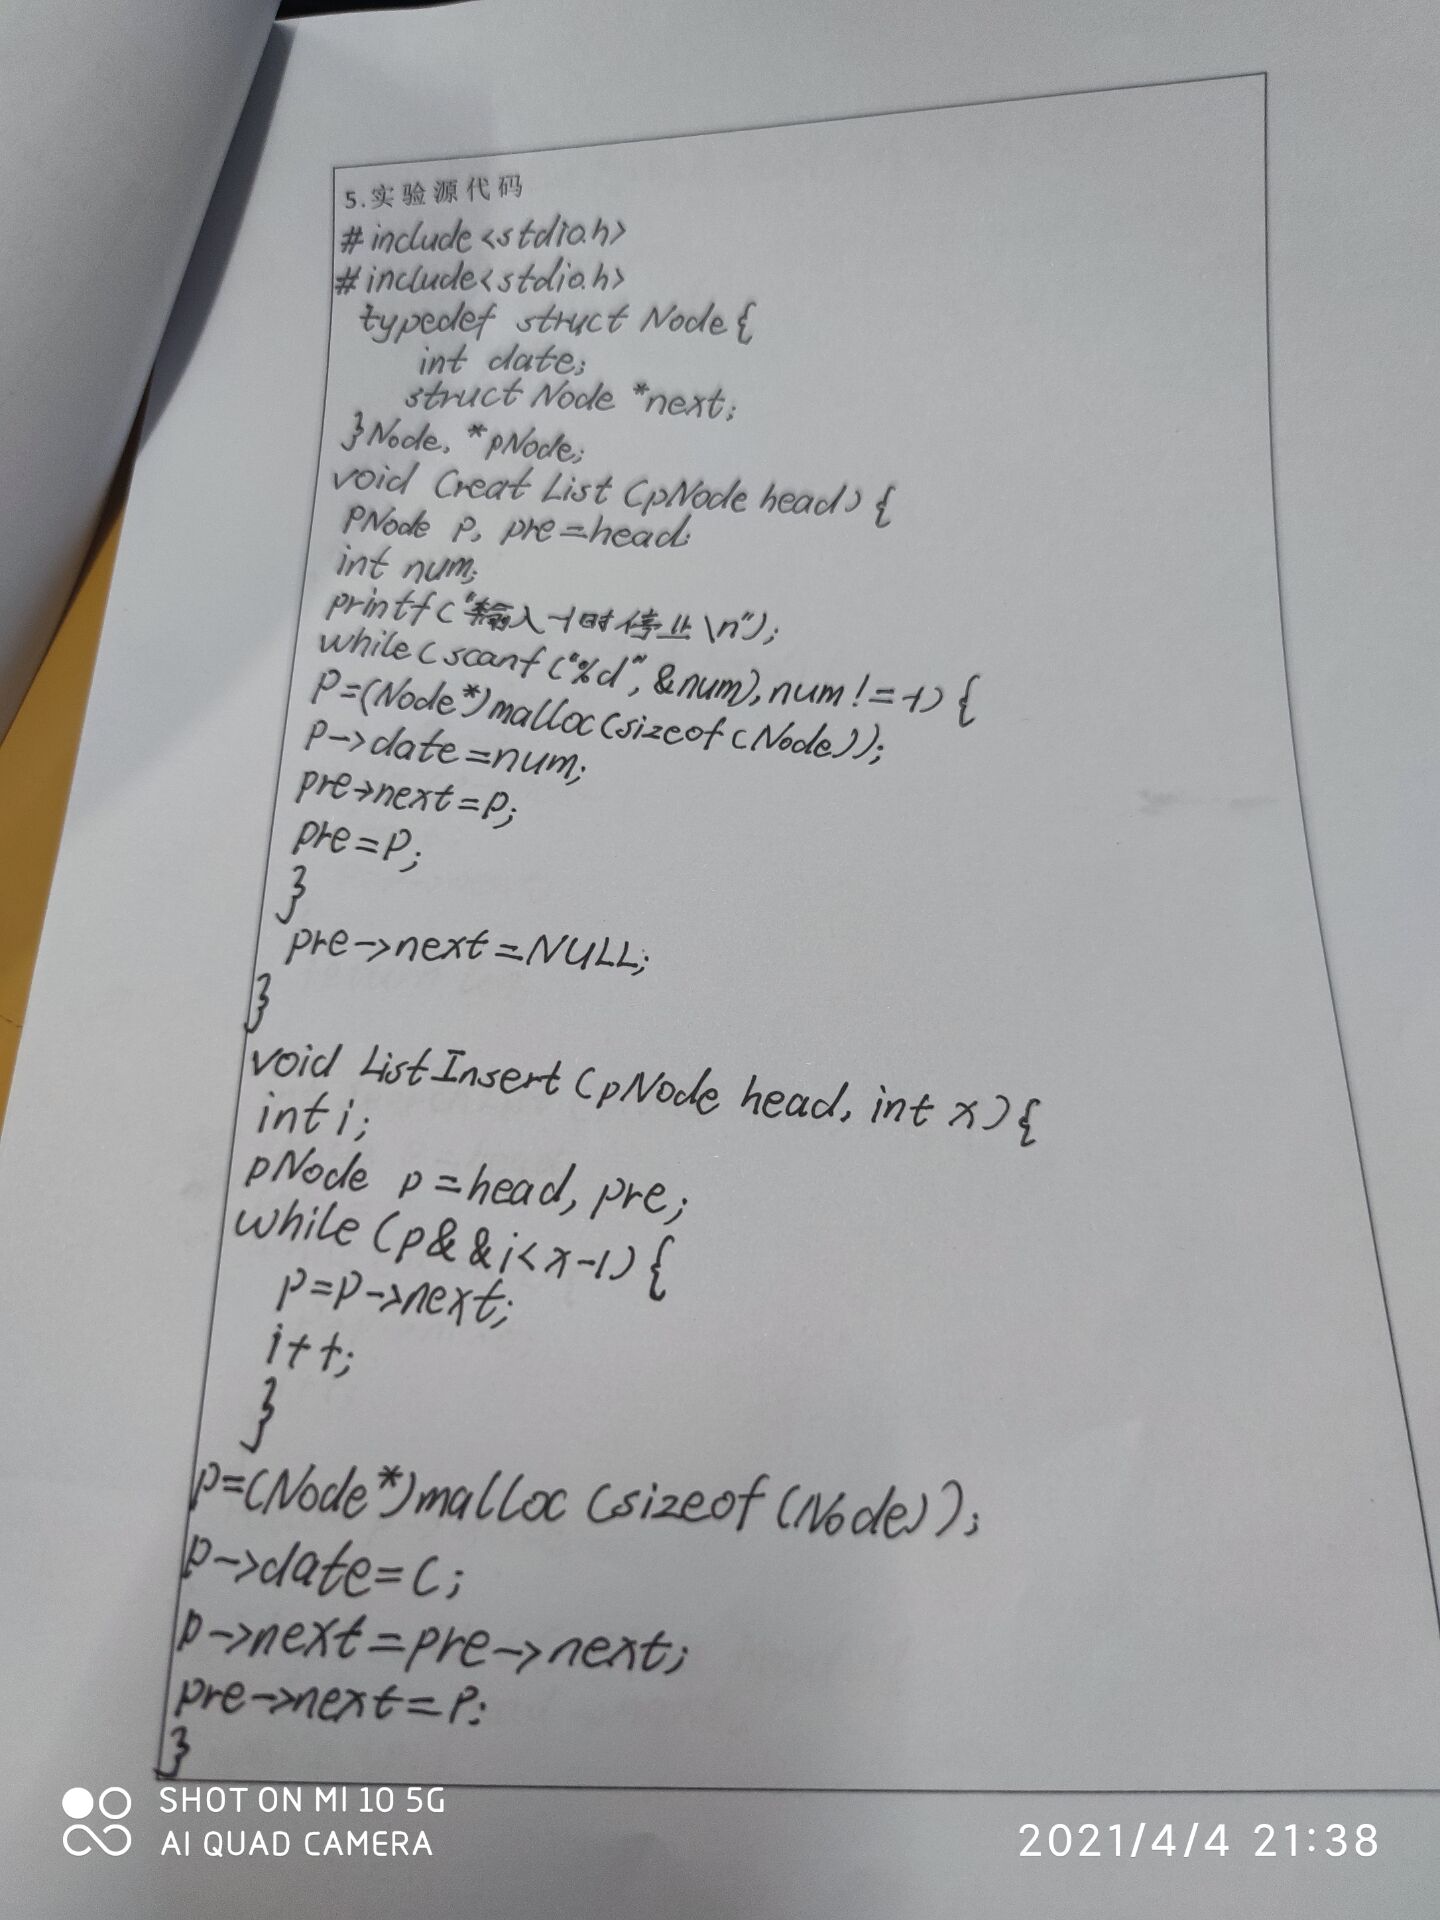 5.实验源代码
#include<stdio.h>
#include<stdio.h>
typedef struct Node{
int date;
struct Node *next;
}Node, *pNode;
void Creat List (pNode head) {
pNode p, pre=head;
int num;
printf("输入-1时停止\n");
while(scanf("%d",&num),num!=-1){
p=(Node*)malloc(sizeof(Node));
p->date=num;
pre->next=p;
pre=p;
}
pre->next=NULL;
}
void ListInsert(pNode head, int x){
int i;
pNode p=head, pre;
while(p&&i<x-1){
p=p->next;
i++;
}
p=(Node*)malloc(sizeof(Node));
p->date=C;
p->next=pre->next;
pre->next=p;
}
SHOT ON MI 10 5G
AI QUAD CAMERA
2021/4/4 21:38